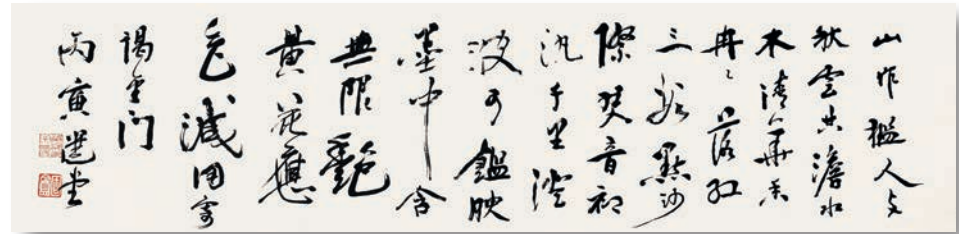 山作檻人与
秋雲共澹水
木清華香
冉冉落紅
三數點沙
際琴音初
汎千里澄
波可鑑映
墨中含
無限艷
黃花應
色減用寄
謁金門
丙寅選堂